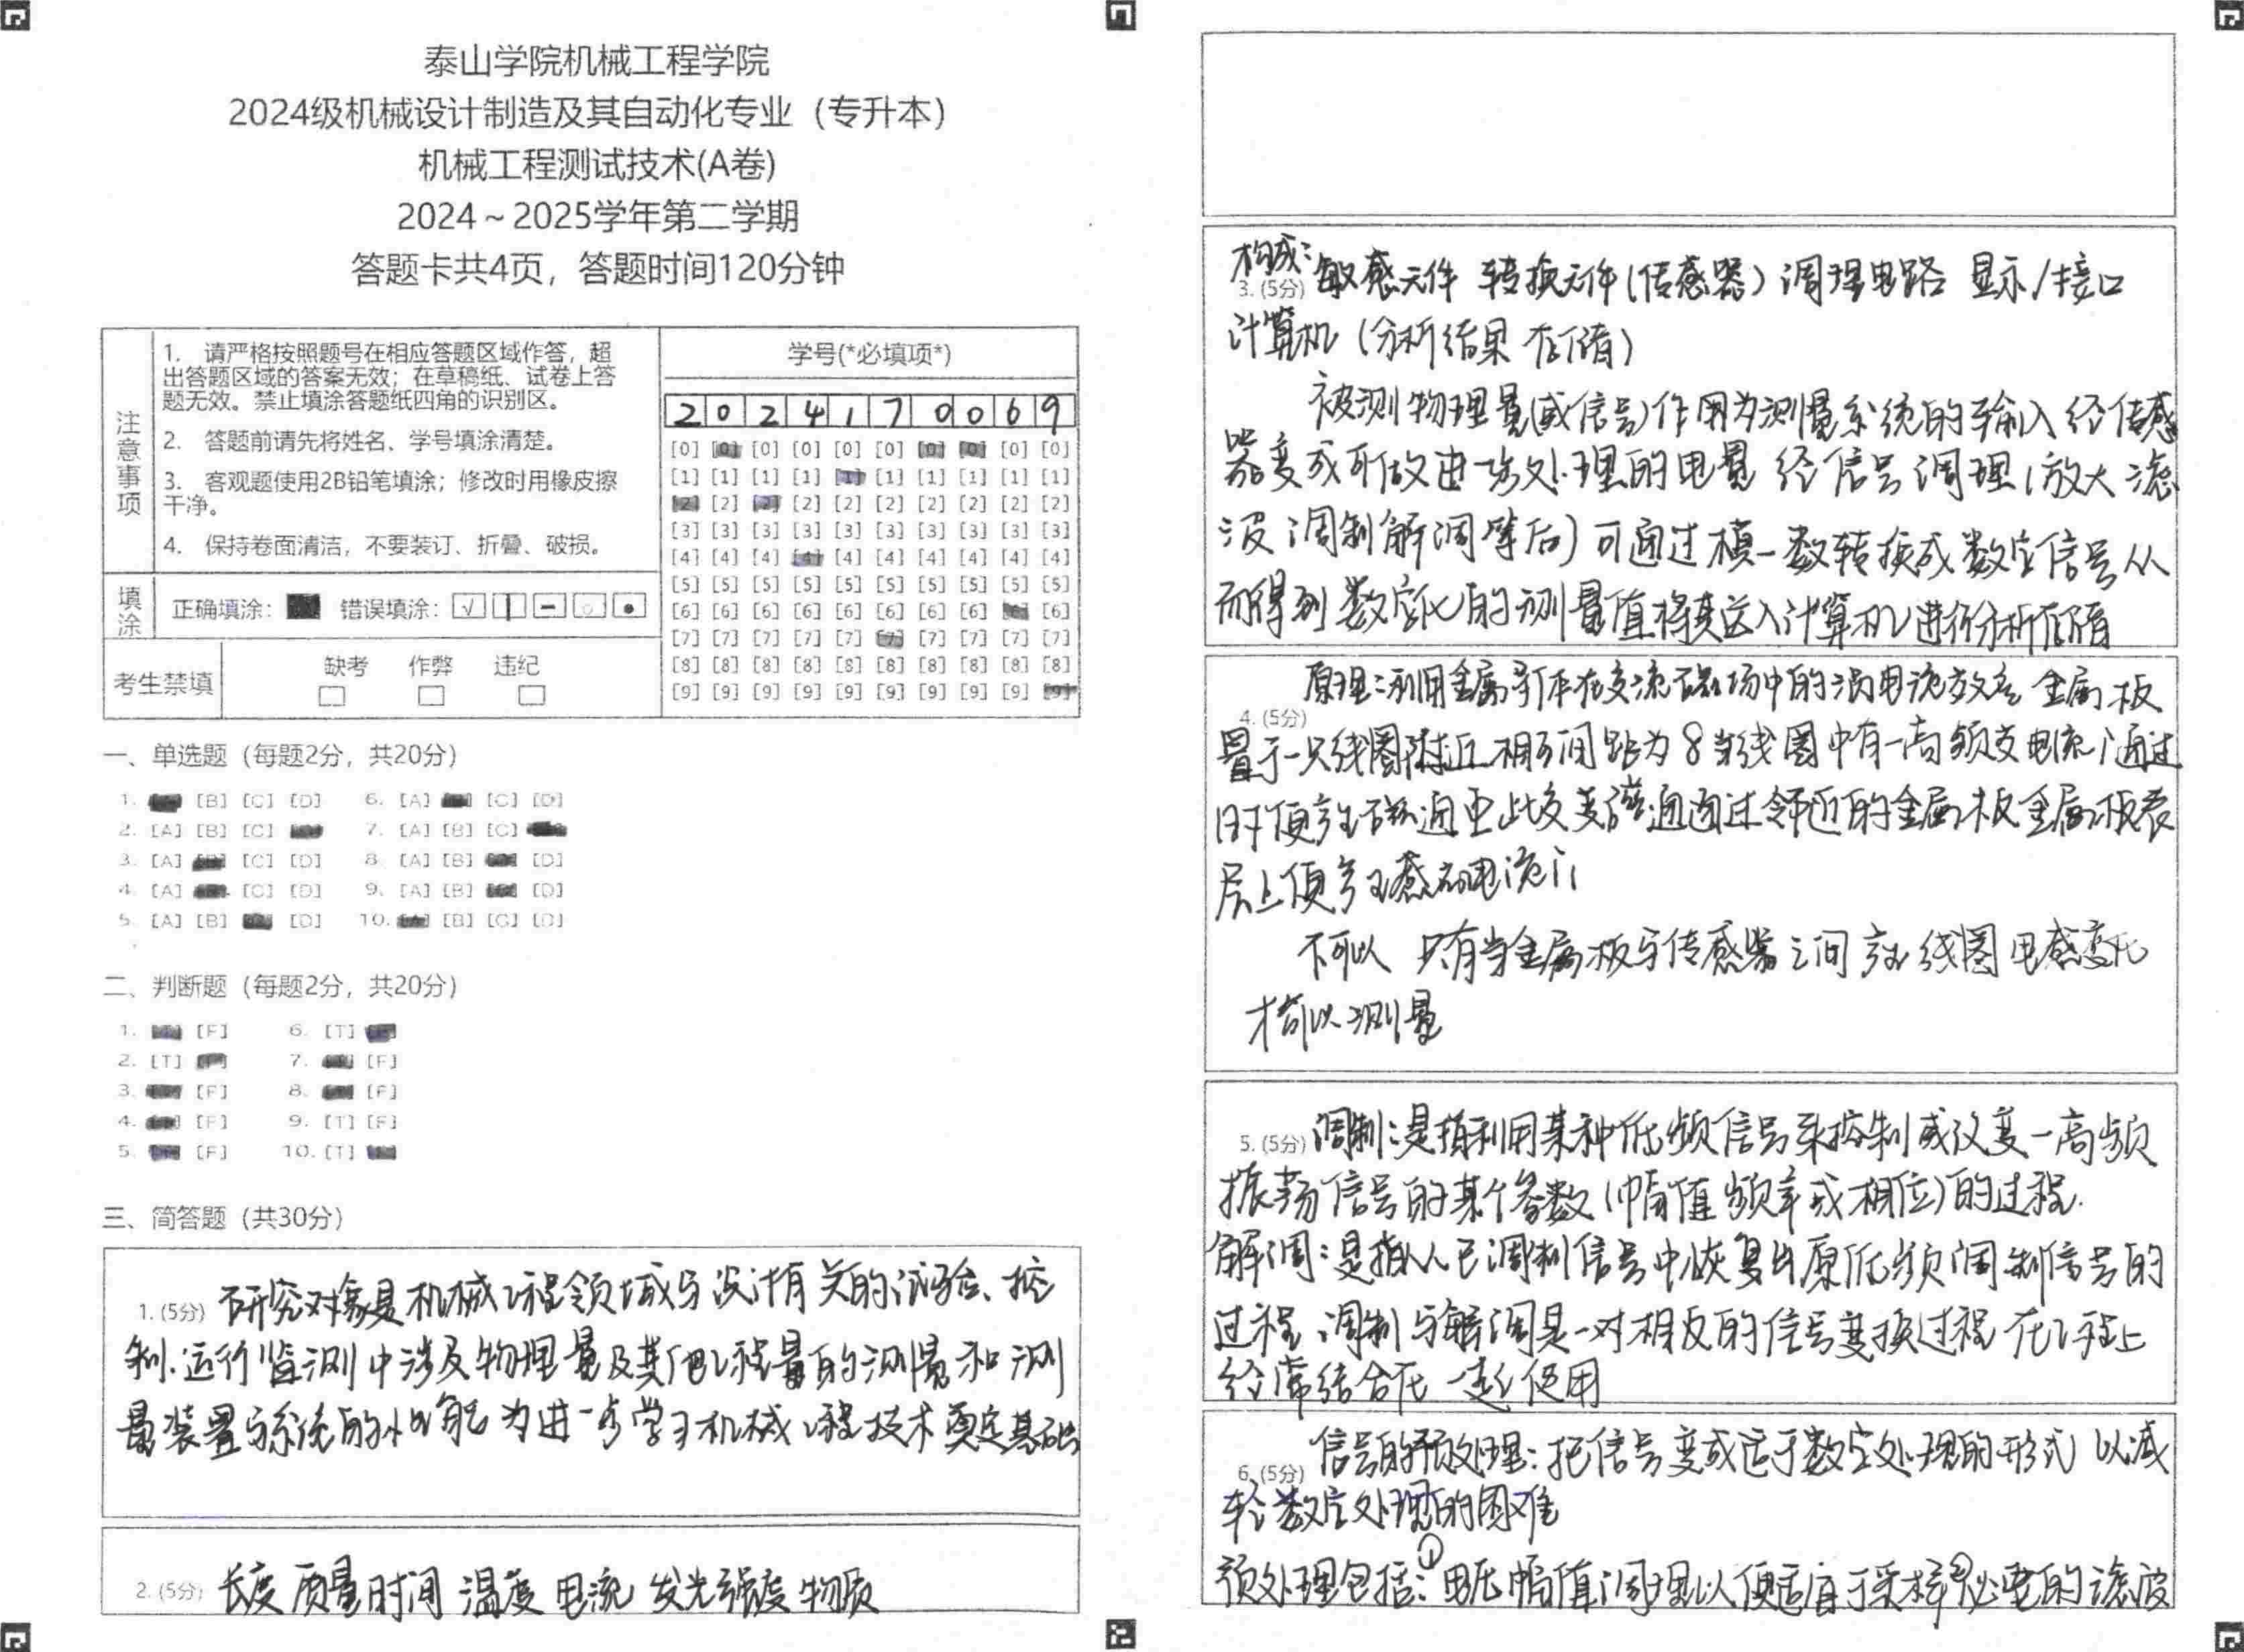 泰山学院机械工程学院
2024级机械设计制造及其自动化专业（专升本）
机械工程测试技术(A卷)
2024～2025学年第二学期
答题卡共4页，答题时间120分钟
注意事项
1. 请严格按照题号在相应答题区域作答，超
出答题区域的答案无效；在草稿纸、试卷上答
题无效。禁止填涂答题纸四角的识别区。
2. 答题前请先将姓名、学号填涂清楚。
3. 客观题使用2B铅笔填涂；修改时用橡皮擦
干净。
4. 保持卷面清洁，不要装订、折叠、破损。
填涂 正确填涂： 错误填涂：
考生禁填 缺考 作弊 违纪
学号(*必填项*)
2 0 2 4 1 7 0 0 6 9
[0] [0] [0] [0] [0] [0] [0] [0] [0]
[1] [1] [1] [1] [1] [1] [1] [1] [1] [1]
[2] [2] [2] [2] [2] [2] [2] [2] [2] [2]
[3] [3] [3] [3] [3] [3] [3] [3] [3] [3]
[4] [4] [4] [4] [4] [4] [4] [4] [4] [4]
[5] [5] [5] [5] [5] [5] [5] [5] [5] [5]
[6] [6] [6] [6] [6] [6] [6] [6] [6]
[7] [7] [7] [7] [7] [7] [7] [7] [7] [7]
[8] [8] [8] [8] [8] [8] [8] [8] [8] [8]
[9] [9] [9] [9] [9] [9] [9] [9] [9] [9]
一、单选题（每题2分，共20分）
1. [B] [C] [D] 6. [A] [C] [D]
2. [A] [B] [C] 7. [A] [B] [C]
3. [A] [C] [D] 8. [A] [B] [D]
4. [A] [C] [D] 9. [A] [B] [D]
5. [A] [B] [D] 10. [B] [C] [D]
二、判断题（每题2分，共20分）
1. [F] 6. [T]
2. [T] 7. [F]
3. [F] 8. [F]
4. [F] 9. [T] [F]
5. [F] 10. [T]
三、简答题（共30分）
1. (5分) 研究对象是机械工程领域与设计有关的试验、控
制、运行监测中涉及物理量及其他工程量的测量和测
量装置与系统的性能 为进一步学习机械工程技术奠定基础
2. (5分) 长度 质量 时间 温度 电流 发光强度 物质
构成：
3. (5分) 敏感元件 转换元件(传感器) 调理电路 显示/接口
计算机 (分析结果 存储)
被测物理量(或信号)作用为测量系统的输入 经传感
器变成可做进一步处理的电量 经信号调理(放大 滤
波 调制解调等后) 可通过模一数转换成数字信号 从
而得到数字化的测量值 将其送入计算机进行分析存储
原理：利用金属导体在交流磁场中的涡电流效应 金属板
4. (5分)
置于一只线圈附近 相互间距为8 当线圈中有一高频交电流i通过
时便产生磁通 由此交变磁通通过邻近的金属板 金属板表
层上便产生感应电流i1
不可以 只有当金属板与传感器之间产生线圈电感变化
才可以测量
5. (5分) 调制：是指利用某种低频信号来控制或改变一高频
振荡信号的某个参数(幅值 频率或相位)的过程.
解调：是指从已调制信号中恢复出原低频调制信号的
过程，调制与解调是一对相反的信号变换过程 在工程上
经常结合在一起使用
信号的预处理：把信号变成适于数字处理的形式 以减
6. (5分)
轻数字处理的困难
预处理包括：①电压幅值调理以便适宜于采样 ②必要的滤波